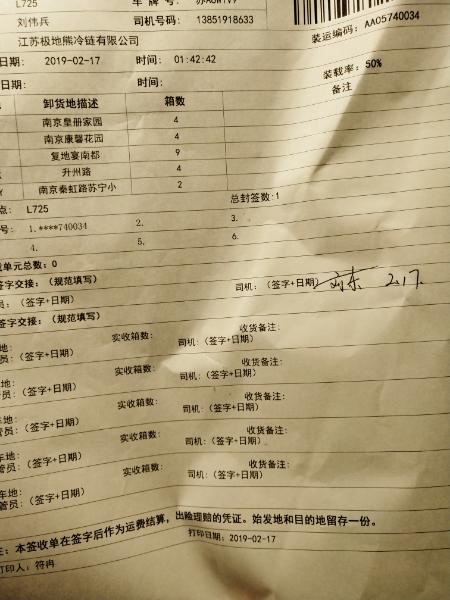 L725 车 牌 号:
刘伟兵 司机号码: 13851918633
江苏极地熊冷链有限公司 装运编码: AAO5740034
日期: 2019-02-17 时间: 01:42:42
装载率: 50%
日期: 时间:
卸货地描述 箱数 备注
南京皇册家园 4
南京康馨花园 4
复地宴南都 9
升州路 4
南京秦虹路苏宁小 2
点: L725 总封签数:1
号: 1.****740034 2. 3.
4. 5. 6.
单元总数: 0
签字交接: (规范填写)
员: (签字+日期) 司机: (签字+日期) 2.17.
签字交接: (规范填写)
地: 实收箱数: 收货备注:
员: (签字+日期) 司机: (签字+日期)
地: 实收箱数: 收货备注:
管员: (签字+日期) 司机: (签字+日期)
车地: 实收箱数: 收货备注:
管员: (签字+日期) 司机: (签字+日期)
车地: 实收箱数: 收货备注:
管员: (签字+日期) 司机: (签字+日期)
车地: 实收箱数: 收货备注:
管员: (签字+日期) 司机: (签字+日期)
注: 本签收单在签字后作为运费结算, 出险理赔的凭证。始发地和目的地留存一份。
打印人: 符冉 打印日期: 2019-02-17